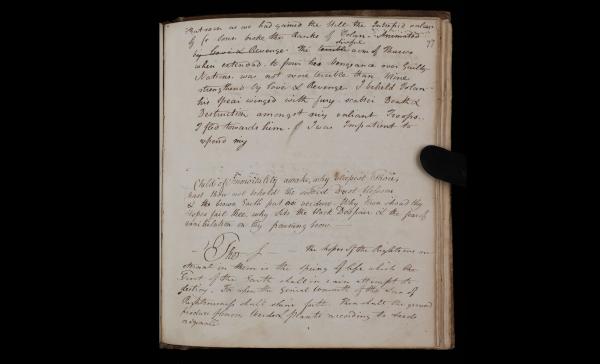 that soon as we had gained the Hill the Intrepid valour
of broke the Ranks of Tolan - Animated
by Love & Revenge. The terrible direful arm of
when extended to pour his Vengeance over Guilty
Nations was not more terrible than Mine
strengthend by Love & Revenge I beheld Tolan
his Spear winged with fury scatter Death &
Destruction amongst my valiant Troops
I fled towards him. I was Impatient to
77
Child of Immortality awake, why sleepest
thou not behold the Dust Blossom
& the brown Earth put on verdure. Why then should thy
hopes fail thee, why sits the black Despair & the fear of
annihilation on thy brow
Thus the hopes of the Righteous
in them is the spring of life which the
Frost of the Earth shall in vain attempt to
destroy. For when the Genial warmth of the Sun of
Righteousness shall shine forth. then shall the ground
produce flowers & plants according to seeds